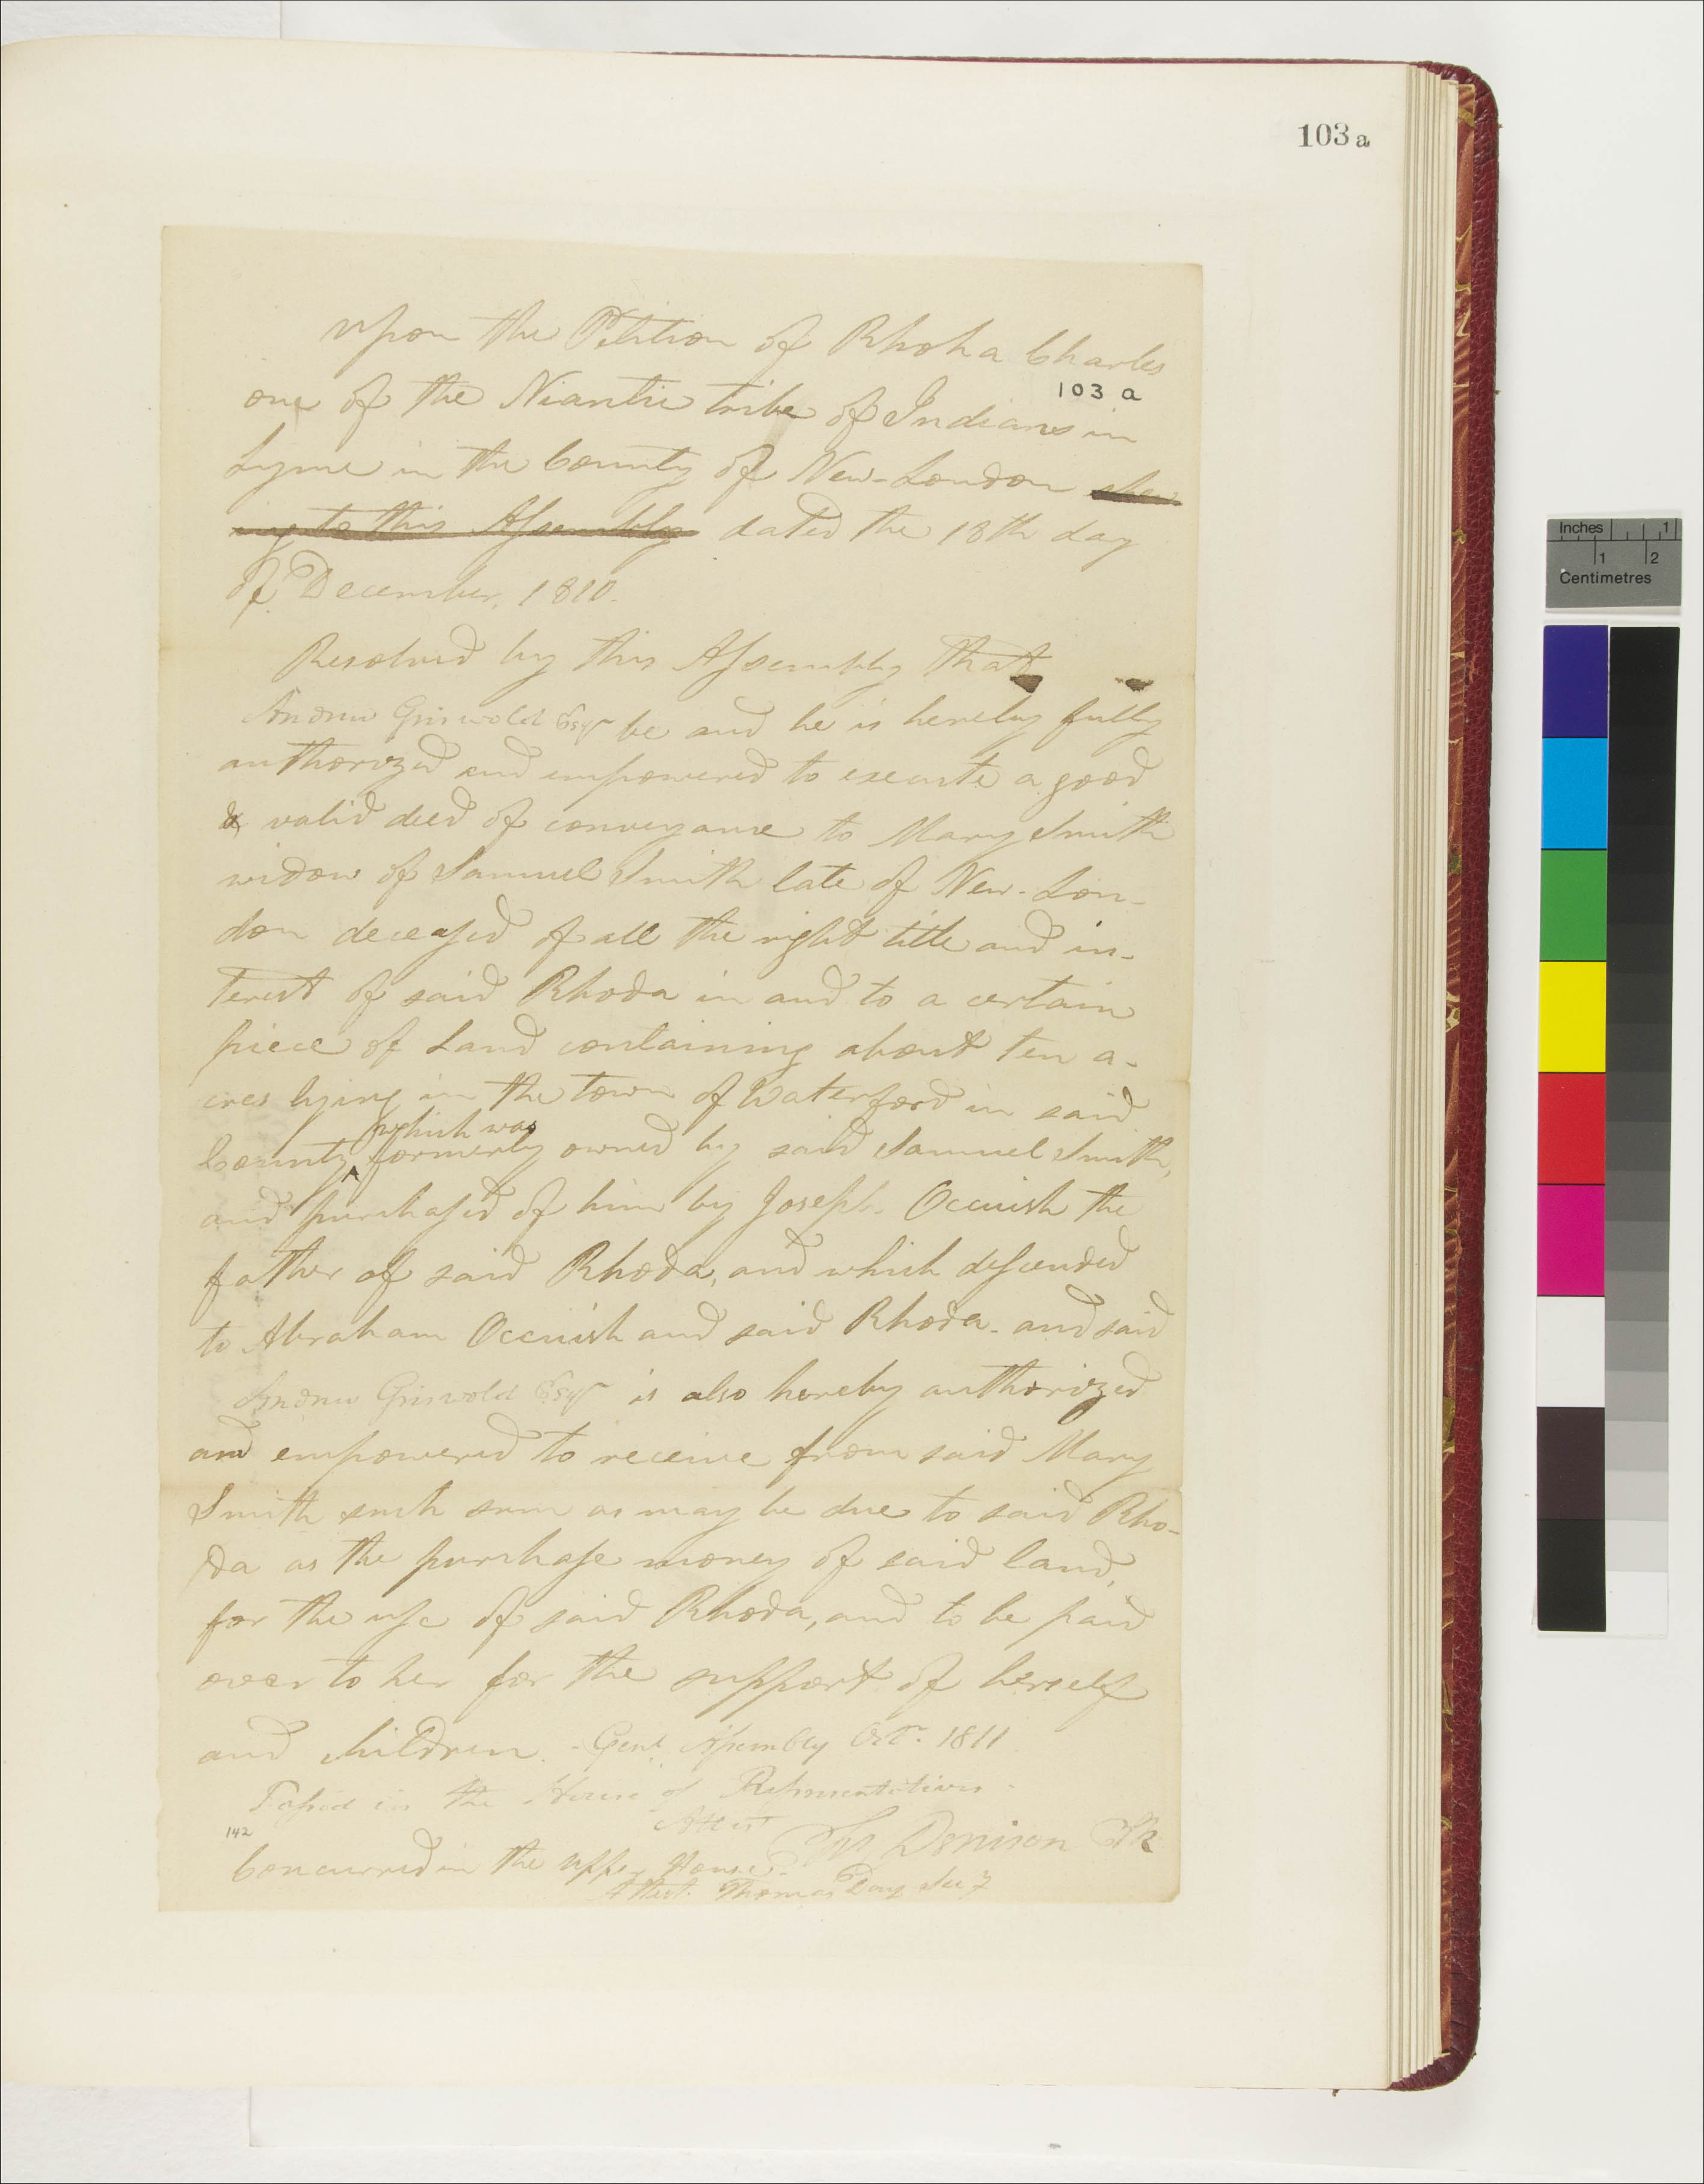 103 a
Upon the Petition of Rhoha Charles
103 a
one of the Niantic tribe of Indians in
Lyme in the County of New-London shew
ing to this Assembly dated the 18th day
of December, 1810.
Resolved by this Assembly that
Andrew Griswold Esqr be and he is hereby fully
authorized and empowered to execute a good
& valid deed of conveyance to Mary Smith
widow of Samuel Smith late of New-Lon-
don deceased of all the right title and in-
terest of said Rhoda in and to a certain
piece of Land containing about ten a-
cres lying in the town of Waterford in said
which was
County ^ formerly owned by said Samuel Smith,
and purchased of him by Joseph Occuish the
father of said Rhoda, and which descended
to Abraham Occuish and said Rhoda - and said
Andrew Griswold Esqr is also hereby authorized
and empowered to receive from said Mary
Smith such sum as may be due to said Rho-
da as the purchase money of said land,
for the use of said Rhoda, and to be paid
over to her for the support of herself
and children. Genl Assembly Octr. 1811
Passed in the House of Representatives.
Attest
142
Denison Clk
Concurred in the upper House.
Attest. Thomas Day Secy
Inches 1
1 2
Centimetres